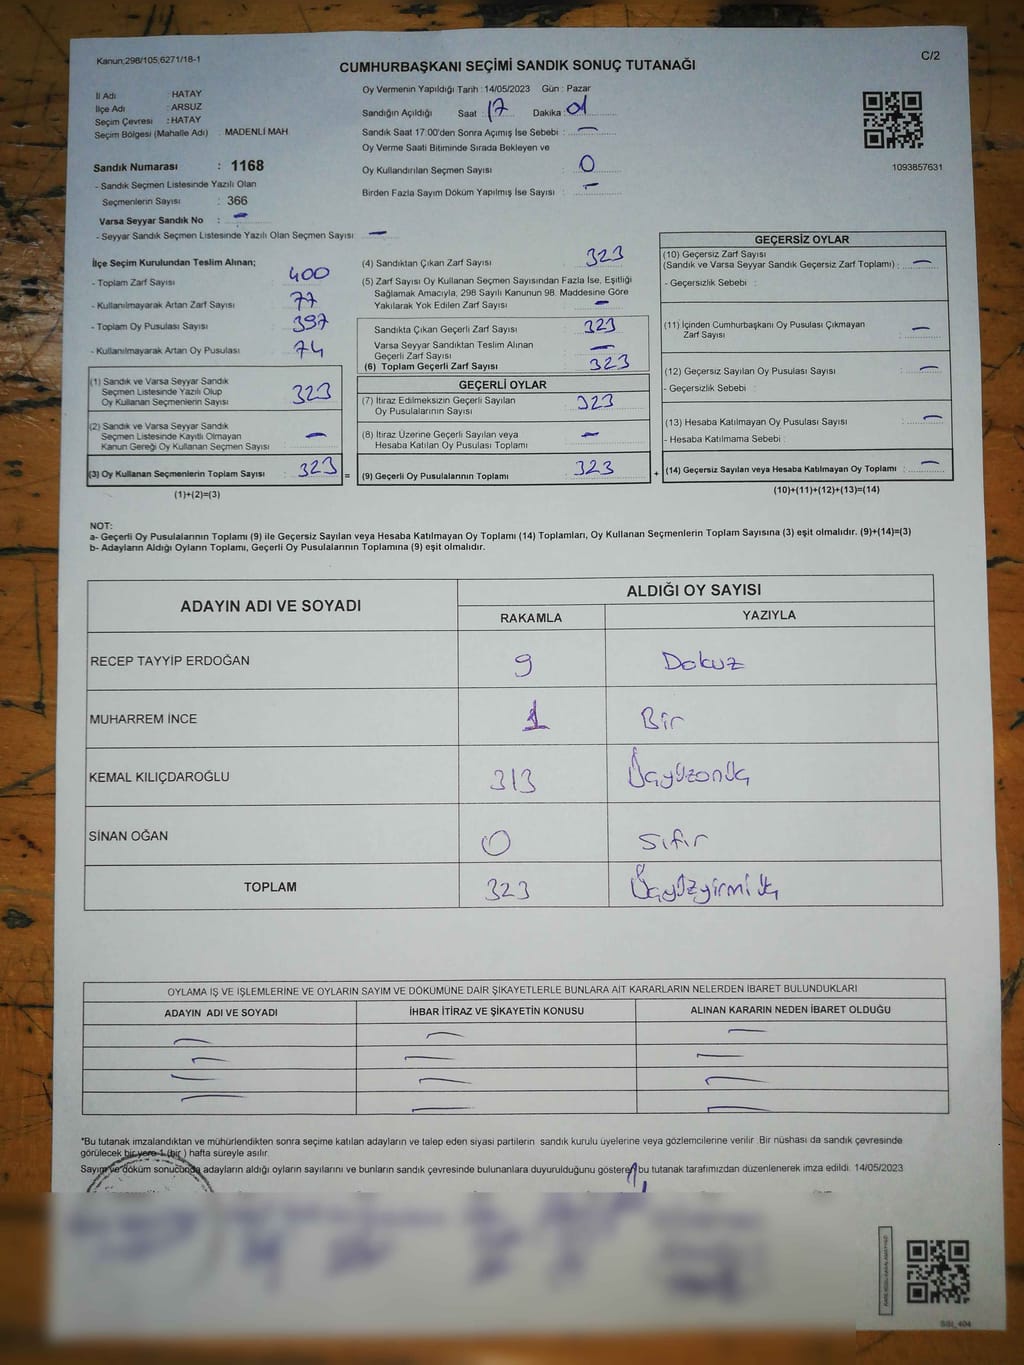 Kanun;298/105,6271/18-1
C/2
CUMHURBAŞKANI SEÇİMİ SANDIK SONUÇ TUTANAĞI
İl Adı : HATAY
İlçe Adı : ARSUZ
Seçim Çevresi : HATAY
Seçim Bölgesi (Mahalle Adı) : MADENLİ MAH.
Sandık Numarası : 1168
- Sandık Seçmen Listesinde Yazılı Olan
Seçmenlerin Sayısı : 366
Varsa Seyyar Sandık No : —
- Seyyar Sandık Seçmen Listesinde Yazılı Olan Seçmen Sayısı : —
Oy Vermenin Yapıldığı Tarih : 14/05/2023 Gün : Pazar
Sandığın Açıldığı Saat : 17 Dakika : 01
Sandık Saat 17:00'den Sonra Açımış İse Sebebi : —
Oy Verme Saati Bitiminde Sırada Bekleyen ve
Oy Kullandırılan Seçmen Sayısı : 0
Birden Fazla Sayım Döküm Yapılmış İse Sayısı : —
1093857631
İlçe Seçim Kurulundan Teslim Alınan;
- Toplam Zarf Sayısı : 400
- Kullanılmayarak Artan Zarf Sayısı : 77
- Toplam Oy Pusulası Sayısı : 397
- Kullanılmayarak Artan Oy Pusulası : 74
(1) Sandık ve Varsa Seyyar Sandık
Seçmen Listesinde Yazılı Olup
Oy Kullanan Seçmenlerin Sayısı : 323
(2) Sandık ve Varsa Seyyar Sandık
Seçmen Listesinde Kayıtlı Olmayan
Kanun Gereği Oy Kullanan Seçmen Sayısı : —
(3) Oy Kullanan Seçmenlerin Toplam Sayısı : 323 =
(1)+(2)=(3)
(4) Sandıktan Çıkan Zarf Sayısı : 323
(5) Zarf Sayısı Oy Kullanan Seçmen Sayısından Fazla İse, Eşitliği
Sağlamak Amacıyla; 298 Sayılı Kanunun 98. Maddesine Göre
Yakılarak Yok Edilen Zarf Sayısı : —
Sandıkta Çıkan Geçerli Zarf Sayısı : 323
Varsa Seyyar Sandıktan Teslim Alınan
Geçerli Zarf Sayısı : —
(6) Toplam Geçerli Zarf Sayısı : 323
GEÇERLİ OYLAR
(7) İtiraz Edilmeksizin Geçerli Sayılan
Oy Pusulalarının Sayısı : 323
(8) İtiraz Üzerine Geçerli Sayılan veya
Hesaba Katılan Oy Pusulası Toplamı : —
(9) Geçerli Oy Pusulalarının Toplamı : 323 +
GEÇERSİZ OYLAR
(10) Geçersiz Zarf Sayısı
(Sandık ve Varsa Seyyar Sandık Geçersiz Zarf Toplamı) : —
- Geçersizlik Sebebi :
(11) İçinden Cumhurbaşkanı Oy Pusulası Çıkmayan
Zarf Sayısı : —
(12) Geçersiz Sayılan Oy Pusulası Sayısı : —
- Geçersizlik Sebebi :
(13) Hesaba Katılmayan Oy Pusulası Sayısı : —
- Hesaba Katılmama Sebebi :
(14) Geçersiz Sayılan veya Hesaba Katılmayan Oy Toplamı : —
(10)+(11)+(12)+(13)=(14)
NOT:
a- Geçerli Oy Pusulalarının Toplamı (9) ile Geçersiz Sayılan veya Hesaba Katılmayan Oy Toplamı (14) Toplamları, Oy Kullanan Seçmenlerin Toplam Sayısına (3) eşit olmalıdır. (9)+(14)=(3)
b- Adayların Aldığı Oyların Toplamı, Geçerli Oy Pusulalarının Toplamına (9) eşit olmalıdır.
ADAYIN ADI VE SOYADI
ALDIĞI OY SAYISI
RAKAMLA YAZIYLA
RECEP TAYYİP ERDOĞAN 9 Dokuz
MUHARREM İNCE 1 Bir
KEMAL KILIÇDAROĞLU 313 Üçyüzonüç
SİNAN OĞAN 0 Sıfır
TOPLAM 323 Üçyüzyirmi üç
OYLAMA İŞ VE İŞLEMLERİNE VE OYLARIN SAYIM VE DÖKÜMÜNE DAİR ŞİKAYETLERLE BUNLARA AİT KARARLARIN NELERDEN İBARET BULUNDUKLARI
ADAYIN ADI VE SOYADI İHBAR İTİRAZ VE ŞİKAYETİN KONUSU ALINAN KARARIN NEDEN İBARET OLDUĞU
— — —
— — —
— — —
— — —
*Bu tutanak imzalandıktan ve mühürlendikten sonra seçime katılan adayların ve talep eden siyasi partilerin sandık kurulu üyelerine veya gözlemcilerine verilir. Bir nüshası da sandık çevresinde
görülecek bir yere 1 (bir ) hafta süreyle asılır.
Sayım ve döküm sonucunda adayların aldığı oyların sayılarını ve bunların sandık çevresinde bulunanlara duyurulduğunu gösteren bu tutanak tarafımızdan düzenlenerek imza edildi. 14/05/2023